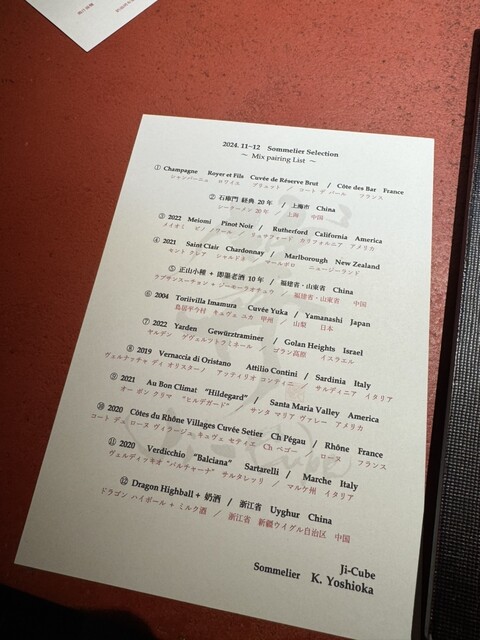 2024. 11~12 Sommelier Selection
~ Mix pairing List ~
① Champagne Royer et Fils Cuvée de Réserve Brut / Côte des Bar France
シャンパーニュ ロワイエ ブリュット / コート デ バール フランス
② 石庫門 経典 20 年 / 上海市 China
シークーメン 20 年 / 上海 中国
③ 2022 Meiomi Pinot Noir / Rutherford California America
メイオミ ピノ ノワール / ラザフォード カリフォルニア アメリカ
④ 2021 Saint Clair Chardonnay / Marlborough New Zealand
セント クレア シャルドネ / マールボロ ニュージーランド
⑤ 正山小種 + 即墨老酒 10 年 / 福建省・山東省 China
ラプサンスーチョン + ジーモーラオチュウ / 福建省・山東省 中国
⑥ 2004 Toriivilla Imamura Cuvée Yuka / Yamanashi Japan
鳥居平今村 キュヴェ ユカ 甲州 / 山梨 日本
⑦ 2022 Yarden Gewürztraminer / Golan Heights Israel
ヤルデン ゲヴュルツトラミネール / ゴラン高原 イスラエル
⑧ 2019 Vernaccia di Oristano Attilio Contini / Sardinia Italy
ヴェルナッチャ ディ オリスターノ アッティリオ コンティニ / サルディニア イタリア
⑨ 2021 Au Bon Climat "Hildegard" / Santa Maria Valley America
オー ボン クリマ "ヒルデガード" サンタ マリア ヴァレー アメリカ
⑩ 2020 Côtes du Rhône Villages Cuvée Setier Ch Pégau / Rhône France
コート デュ ローヌ ヴィラージュ キュヴェ セティエ Ch ペゴー / ローヌ フランス
⑪ 2020 Verdicchio "Balciana" Sartarelli / Marche Italy
ヴェルディッキオ "バルチャーナ" サルタレッリ / マルケ州 イタリア
⑫ Dragon Highball + 奶酒 / 浙江省 Uyghur China
ドラゴン ハイボール + ミルク酒 / 浙江省 新疆ウイグル自治区 中国
Ji-Cube
Sommelier K. Yoshioka